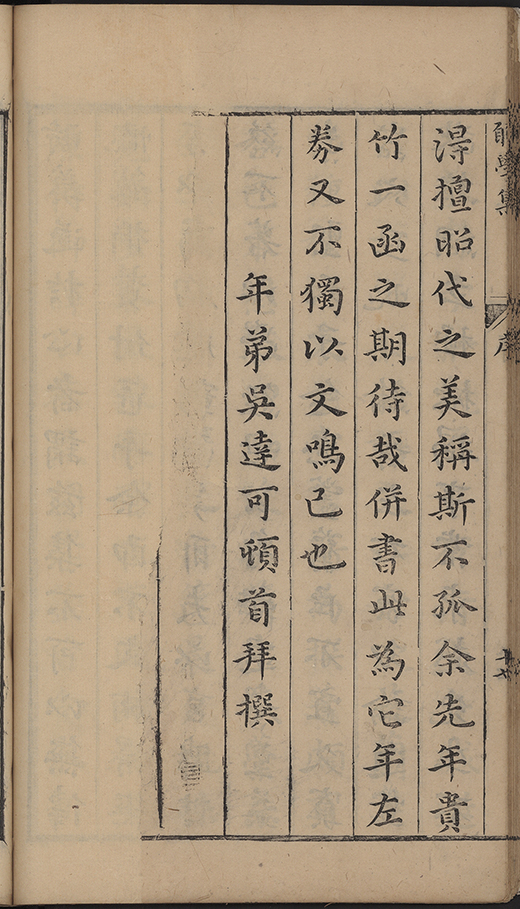 學集
序
淂擅昭代之美稱斯不孤余先年貴
竹一函之期待哉併書此為它年左
券又不獨以文鳴已也
年弟吳達可頓首拜撰